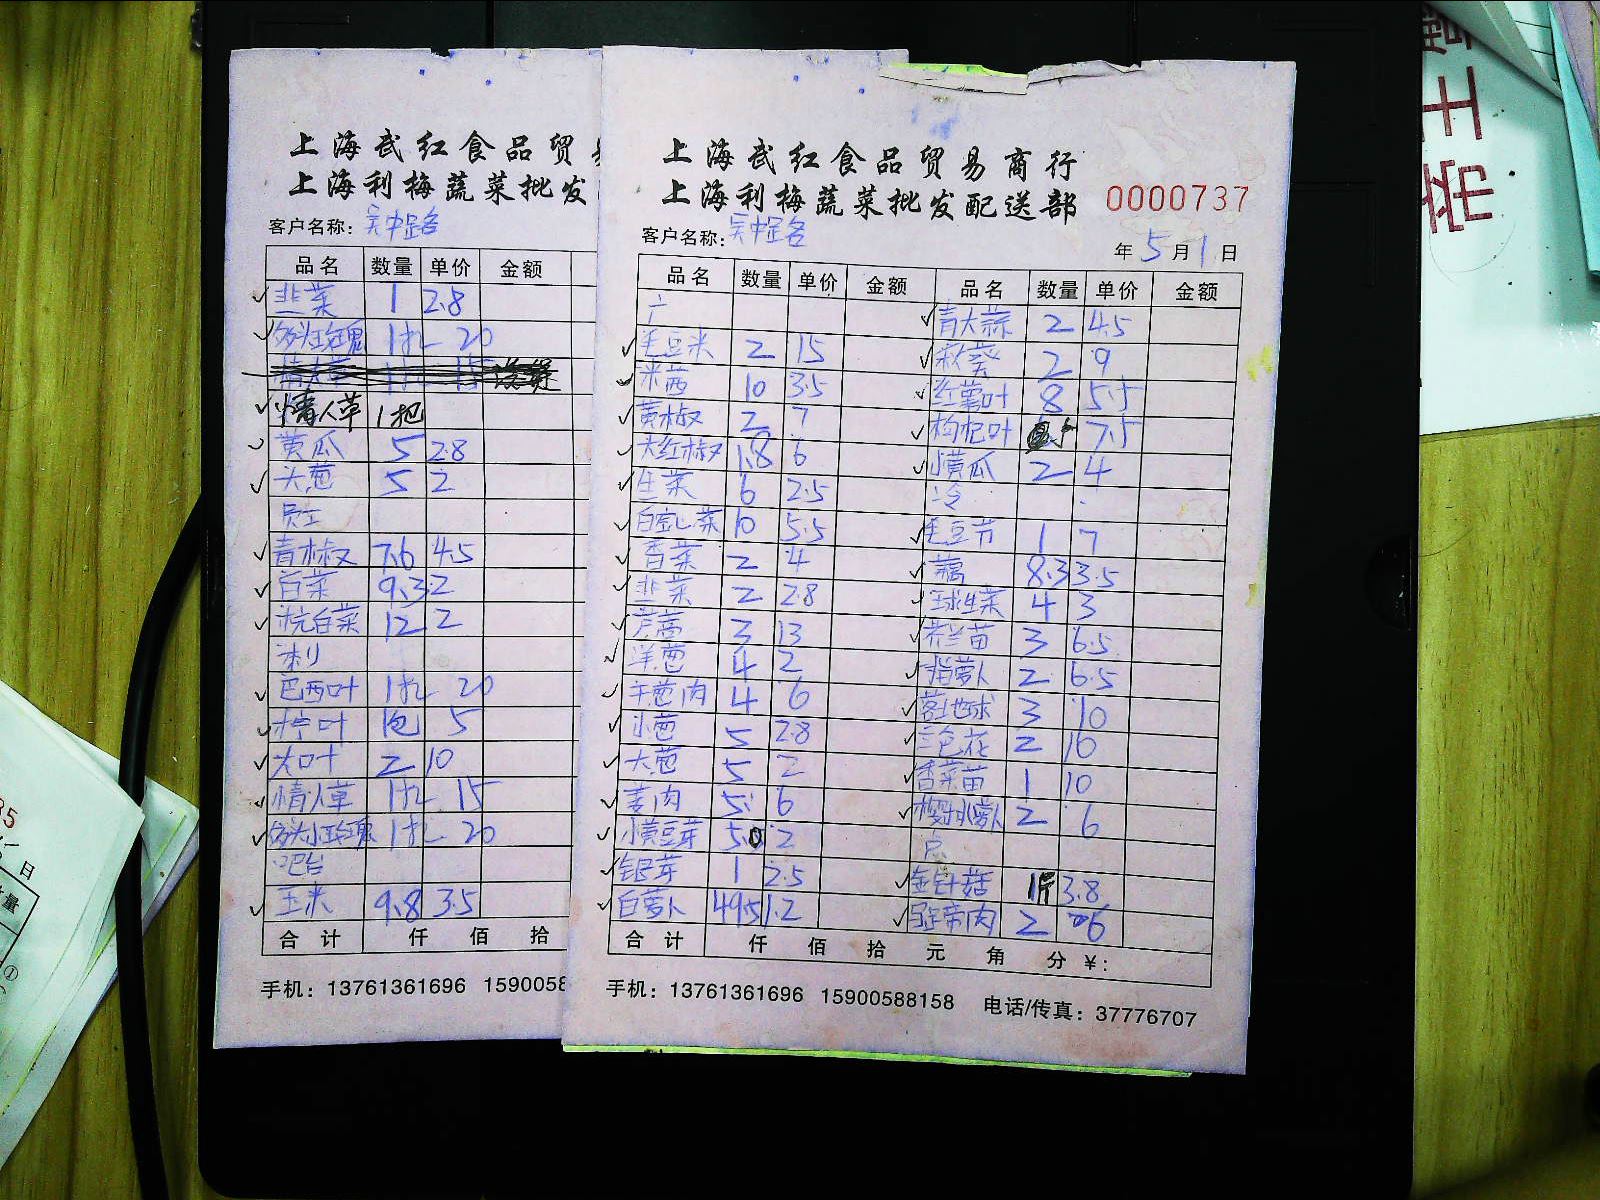 上海武红食品贸易
上海利梅蔬菜批发
客户名称：吴中路名
品名 数量 单价 金额
韭菜 1 2.8
1扎 20
情人草 1把
黄瓜 5 2.8
大葱 5 2
员工
青椒 7.6 4.5
白菜 9.3 2
杭白菜 12 2
巴西叶 1扎 20
柠叶 1包 5
大叶 2 10
情人草 1扎 15
1扎 20
吧台
玉米 9.8 3.5
合计 仟 佰 拾
手机：13761361696 1590058
上海武红食品贸易商行
上海利梅蔬菜批发配送部 0000737
客户名称：吴中路名
年 5 月 1 日
品名 数量 单价 金额 品名 数量 单价 金额
青大蒜 2 4.5
毛豆米 2 15 秋葵 2 9
米茜 10 3.5 红薯叶 8 5.5
黄椒 2 7 枸杞叶 7.5
大红椒 1.8 6 小黄瓜 2 4
生菜 6 2.5 冷
白空心菜 10 5.5 毛豆节 1 7
香菜 2 4 藕 8.3 3.5
韭菜 2 2.8 球生菜 4 3
芦蒿 3 13 芥兰苗 3 6.5
洋葱 4 2 指萝卜 2 6.5
干葱肉 4 6 3 10
小葱 5 2.8 三色花 2 10
大葱 5 2 香菜苗 1 10
姜肉 5 6 樱桃小萝卜 2 6
小黄豆芽 5.0 2 点
银芽 1 2.5 金针菇 1斤 3.8
白萝卜 49.5 1.2 2 6
合计 仟 佰 拾 元 角 分 ¥：
手机：13761361696 15900588158 电话/传真：37776707
帝王